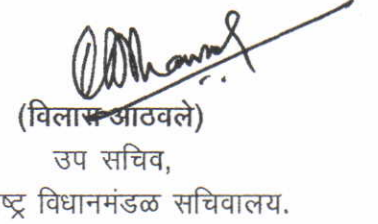 (विलास आठवले)
उप सचिव,
ष्ट्र विधानमंडळ सचिवालय.